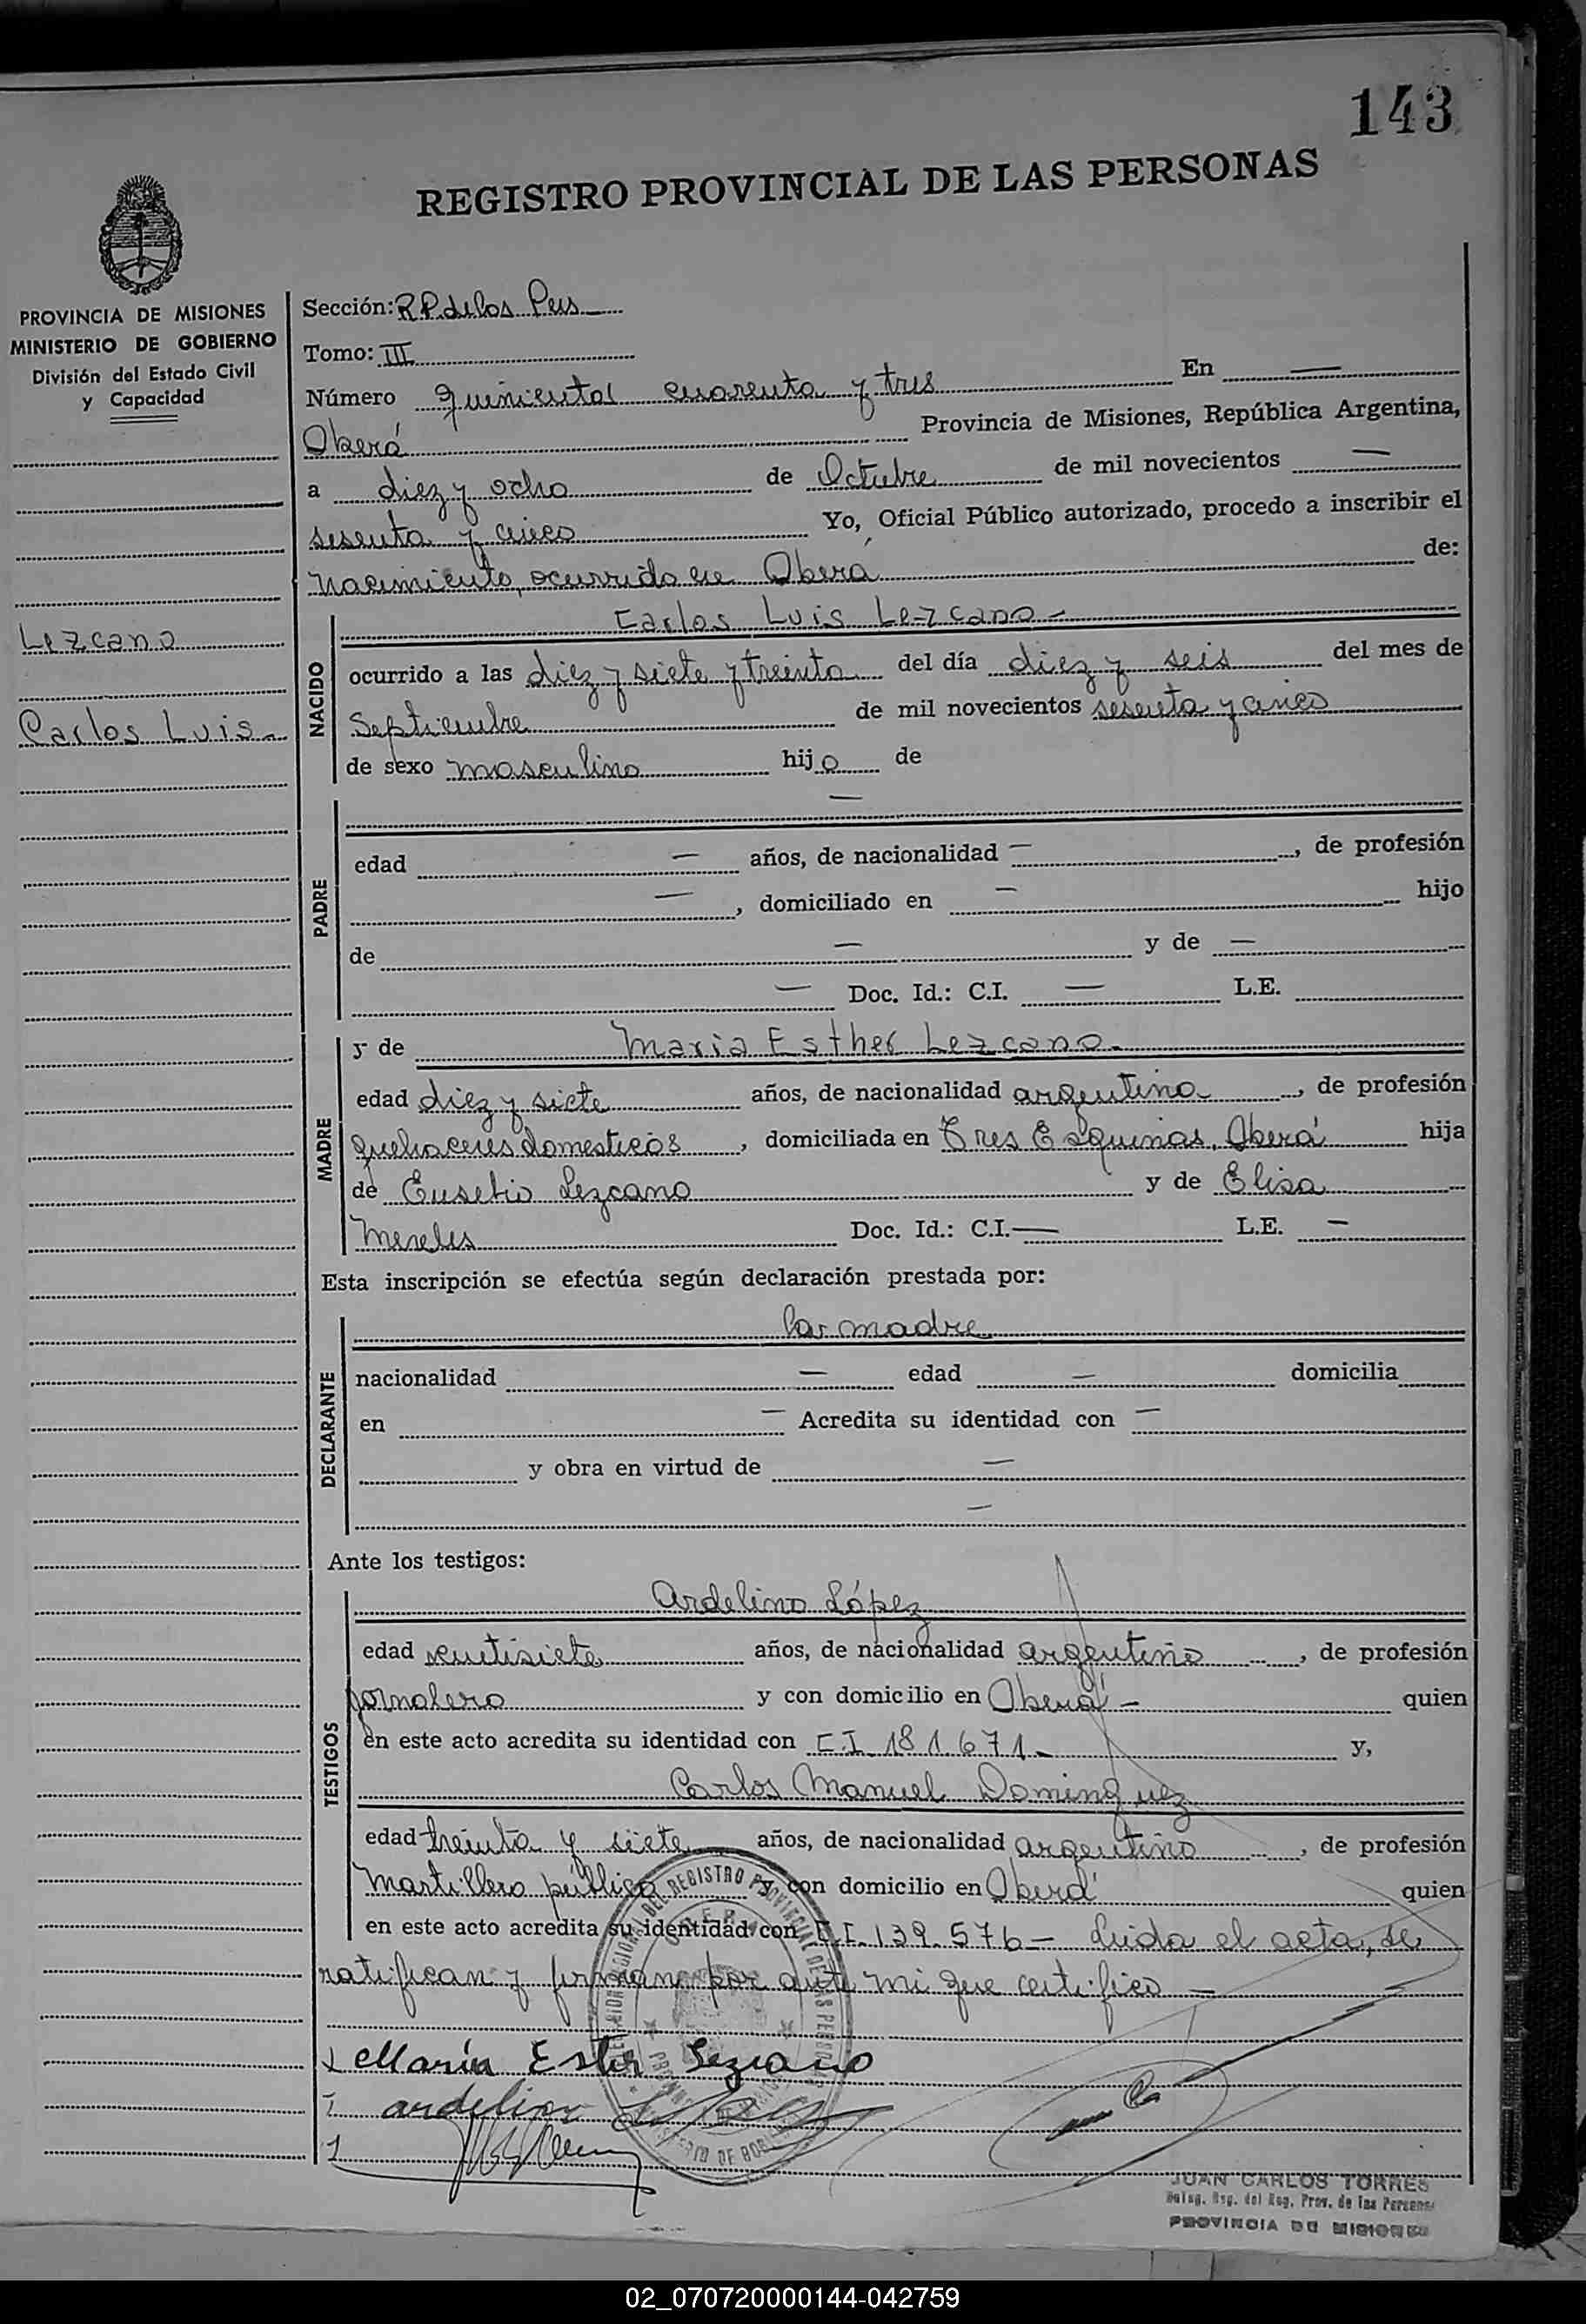 143
REGISTRO PROVINCIAL DE LAS PERSONAS
PROVINCIA DE MISIONES
MINISTERIO DE GOBIERNO
División del Estado Civil
y Capacidad
Lezcano
Carlos Luis.-
Sección: R.P. de las Pers
Tomo: III
Número quinientos cuarenta y tres En —
Oberá Provincia de Misiones, República Argentina,
a diez y ocho de Octubre de mil novecientos —
sesenta y cinco Yo, Oficial Público autorizado, procedo a inscribir el
Nacimiento, ocurrido en Oberá de:
NACIDO
Carlos Luis Lezcano-
ocurrido a las diez y siete y treinta del día diez y seis del mes de
Septiembre de mil novecientos sesenta y cinco
de sexo masculino hijo de
PADRE
—
edad — años, de nacionalidad — , de profesión
— , domiciliado en — hijo
de — y de —
— Doc. Id.: C.I. — L.E.
MADRE
y de Maria Esther Lezcano.-
edad diez y siete años, de nacionalidad argentina , de profesión
quehaceres domesticos , domiciliada en Tres Esquinas, Oberá hija
de Eusebio Lezcano y de Elisa
Mereles Doc. Id.: C.I. — L.E. —
Esta inscripción se efectúa según declaración prestada por:
DECLARANTE
la madre
nacionalidad — edad — domicilia
en — Acredita su identidad con —
y obra en virtud de —
—
Ante los testigos:
TESTIGOS
Ardelino López
edad ventisiete años, de nacionalidad argentino , de profesión
jornalero y con domicilio en Oberá - quien
en este acto acredita su identidad con C.I. 181.671- y,
Carlos Manuel Dominguez
edad treinta y siete años, de nacionalidad argentino , de profesión
Martillero público y con domicilio en Oberá quien
en este acto acredita su identidad con C.I. 139.576 - Leida el acta, se
ratifican y firman por ante mi que certifico —
María Ester Lezcano
ardelino
JUAN CARLOS TORRES
Deleg. Reg. del Reg. Prov. de las Personas
PROVINCIA DE MISIONES
02_070720000144-042759